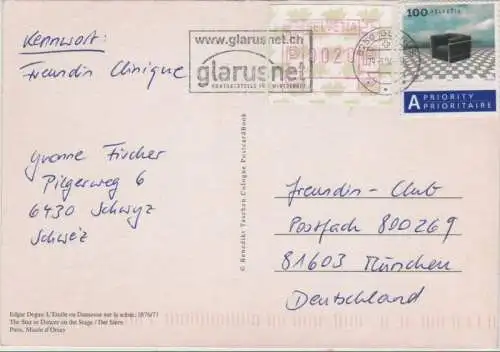 Kennwort:
Freundin Clinique
www.glarusnet.ch
glarusnet
HELVETIA
0020
100 HELVETIA
A PRIORITY
PRIORITAIRE
Yvonne Fischer
Pilgerweg 6
6430 Schwyz
Schweiz
© Benedikt Taschen Cologne PostcardBook
Freundin-Club
Postfach 800269
81603 München
Deutschland
Edgar Degas: L'Etoile ou Danseuse sur la scène, 1876/77
The Star or Dancer on the Stage / Der Stern
Paris, Musée d'Orsay